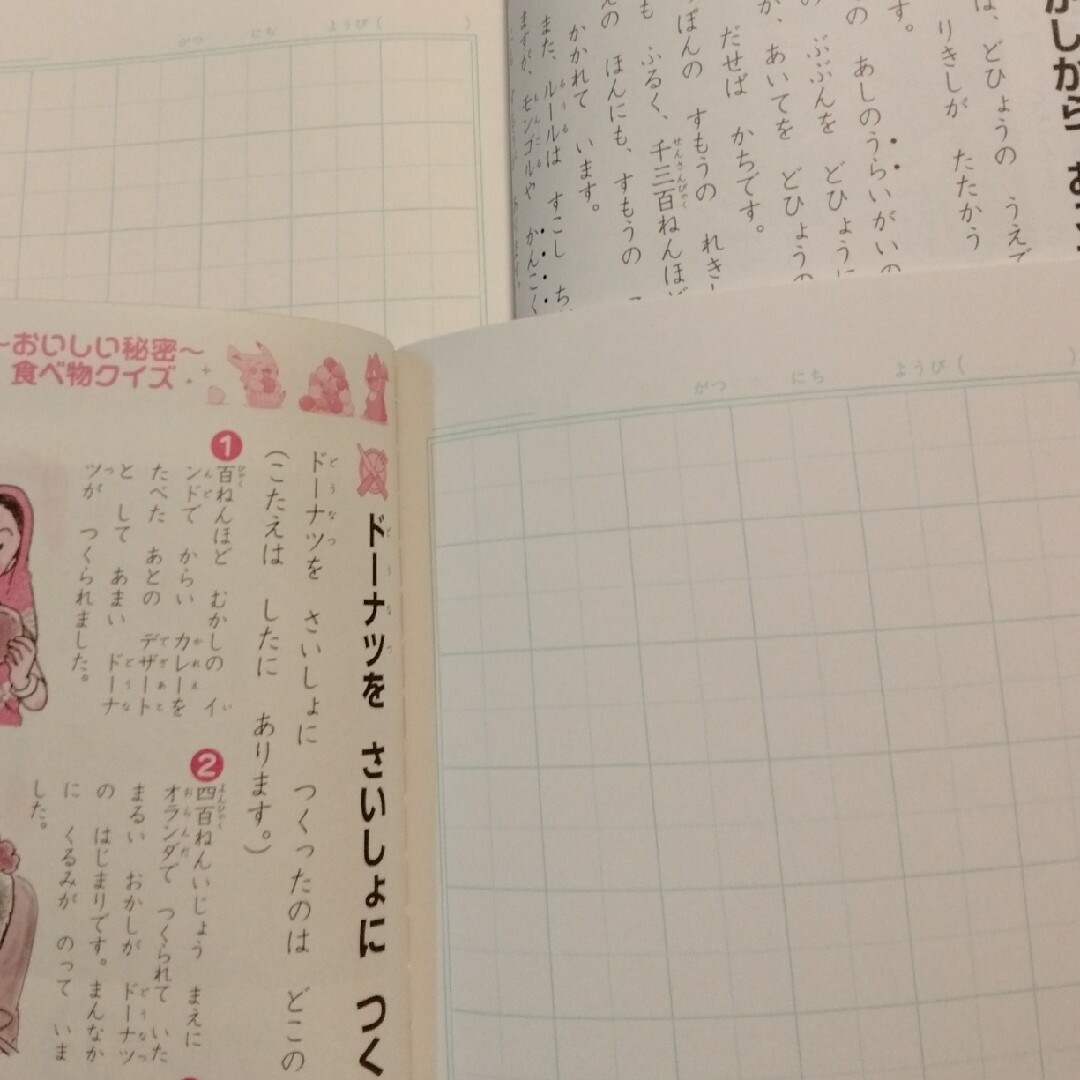 がつ にち ようび( )
がしから
は、どひょうの うえで
りきしが たたかう
す。
の あしのうらいがいの
ぶぶんを どひょうに
が、あいてを どひょうの
だせば かちです。
ぽんの すもうの れき
も ふるく、千三百ねんほど
せんさんびゃく
の ほんにも、すもうの
かかれて います。
また、ルールは すこし ち
るうる
ますが、モンゴルや かんこく
もんごる
~おいしい秘密~
食べ物クイズ
ドーナツを さいしょに つく
どうなつ
ドーナツを さいしょに つくったのは どこの
どうなつ
(こたえは したに あります。)
1
百ねんほど むかしの イ
ひゃく い
ンドで からい カレーを
んど かれえ
たべた あとの デザート
でざあと
と して あまい ドーナ
どうな
ツが つくられました。
つ
2
四百ねんいじょう まえに
よんひゃく
オランダで つくられて いた
おらんだ
まるい おかしが ドーナツ
どうなつ
の はじまりです。まんなか
に くるみが のって いま
した。
がつ にち ようび( )